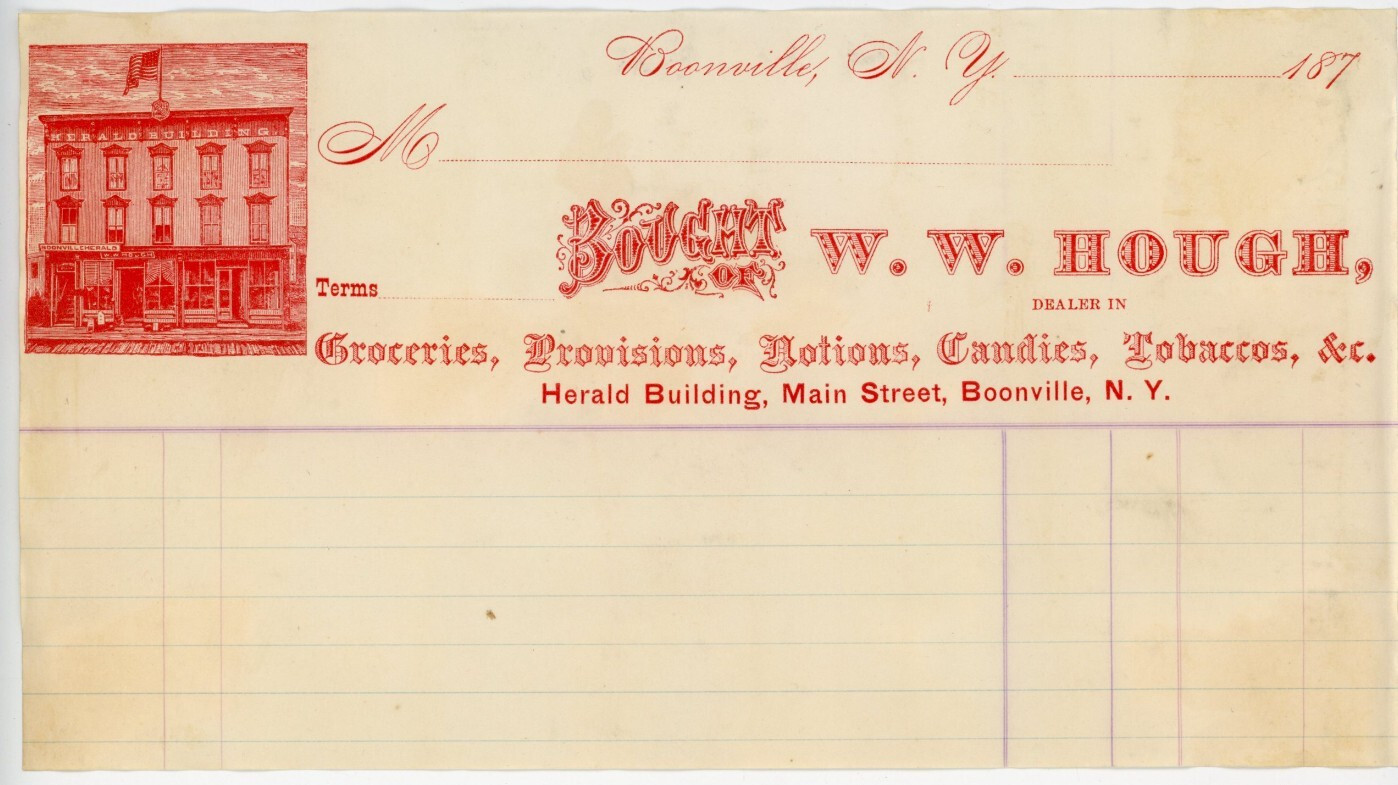 Boonville, N. Y. 187
M
HERALD BUILDING
BOONVILLE HERALD
W. W. HOUGH
Terms
BOUGHT OF W. W. HOUGH,
DEALER IN
Groceries, Provisions, Notions, Candies, Tobaccos, &c.
Herald Building, Main Street, Boonville, N. Y.